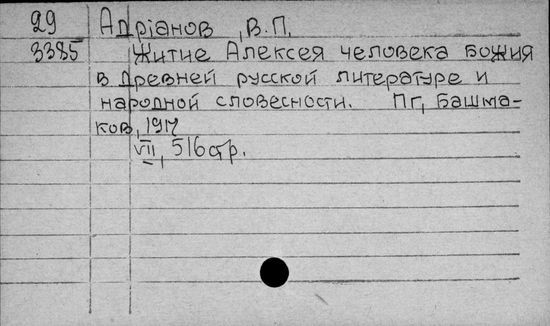 29 Адрiанов, В.П.
3385 Житие Алексея человека божия
в древней русской литературе и
народной словесности. Пг, Башма-
ков, 1917
VII, 516 стр.